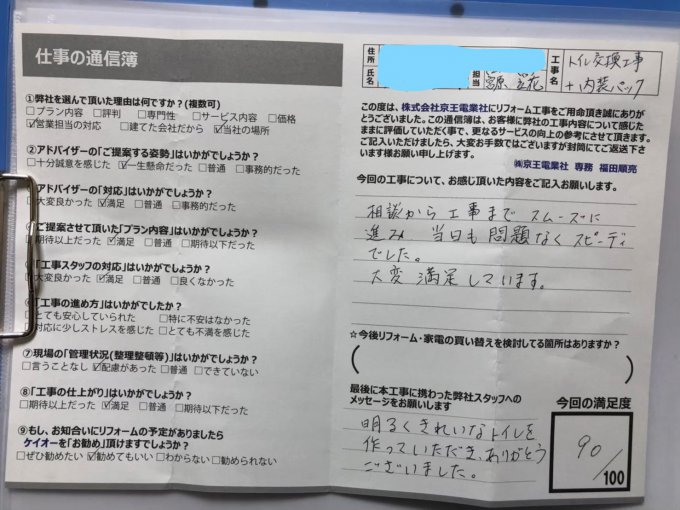 仕事の通信簿
①弊社を選んで頂いた理由は何ですか？(複数可)
□プラン内容 □評判 □専門性 □サービス内容 □価格
☑営業担当の対応 □建てた会社だから ☑当社の場所
②弊社の「ご提案する姿勢」はいかがでしょうか？
□十分誠意を感じた ☑一生懸命だった □普通 □事務的だった
アドバイザーの「対応」はいかがでしょうか？
□大変良かった ☑満足 □普通 □事務的だった
ご提案させて頂いた「プラン内容」はいかがでしょうか？
□期待以上だった ☑満足 □普通 □期待以下だった
「工事スタッフの対応」はいかがでしょうか？
□大変良かった ☑満足 □普通 □良くなかった
「工事の進め方」はいかがでしたか？
□とても安心していられた □特に不安はなかった
□対応に少しストレスを感じた □とても不満を感じた
⑦現場の「管理状況(整理整頓等)」はいかがでしょうか？
□言うことなし ☑配慮があった □普通 □できていない
⑧「工事の仕上がり」はいかがでしょうか？
□期待以上だった ☑満足 □普通 □期待以下だった
⑨もし、お知合いにリフォームの予定がありましたら
ケイオーを「お勧め」頂けますでしょうか？
□ぜひ勧めたい ☑勧めてもいい □わからない □勧められない
住所
氏名
担当
工事名
トイレ交換工事
+内装パック
この度は、株式会社京王電業社にリフォーム工事をご用命頂き誠にありが
とうございました。この通信簿は、お客様に弊社の工事内容について感じた
ままに評価していただく事で、更なるサービスの向上の参考にさせて頂きます。
ご記入いただけましたら、大変お手数ではございますが封筒にてご返送下さ
います様お願い申し上げます。
㈱京王電業社 専務 福田順亮
今回の工事について、お感じ頂いた内容をご記入お願いします。
相談から工事までスムーズに
進み 当日も問題なくスピーディ
でした。
大変満足しています。
☆今後リフォーム・家電の買い替えを検討してる箇所はありますか？
( )
最後に本工事に携わった弊社スタッフへの
メッセージをお願いします
明るくきれいなトイレを
作っていただき、ありがとう
ございました。
今回の満足度
90
/100